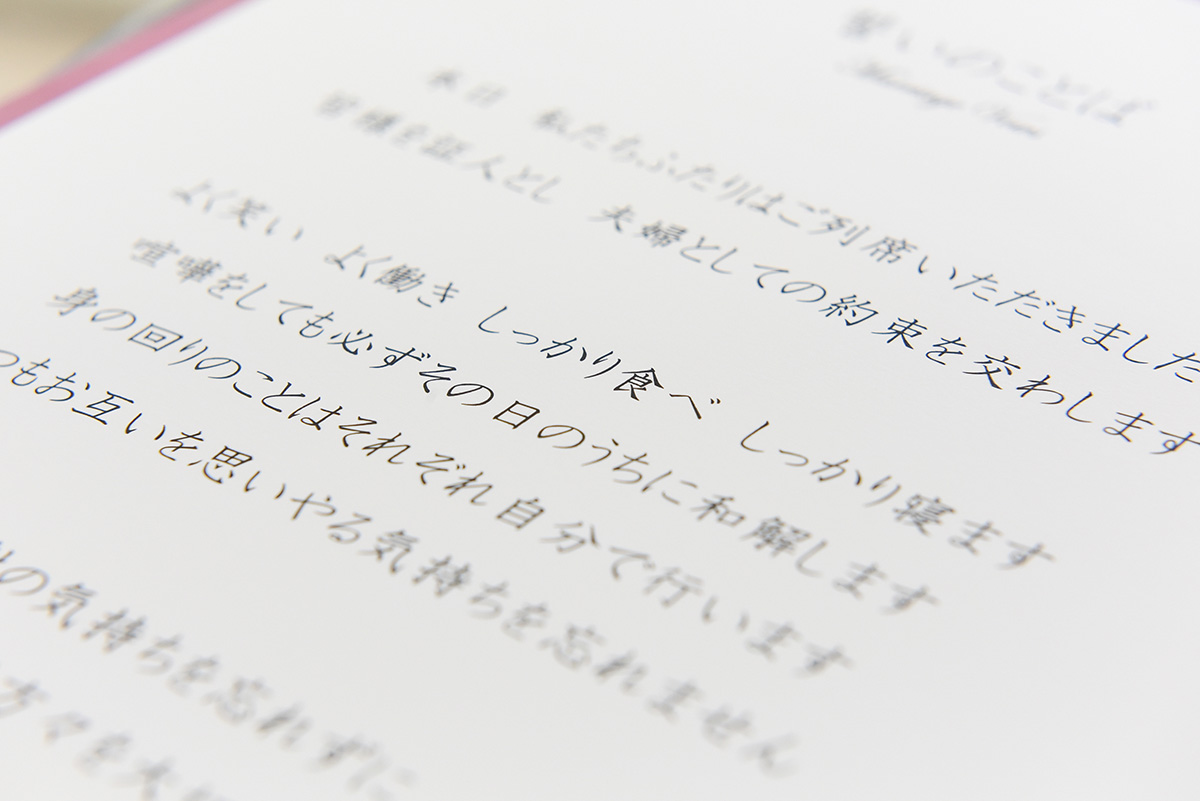 誓いのことば
Marriage Vows
本日 私たちふたりはご列席いただきました
皆様を証人とし 夫婦としての約束を交わします
よく笑い よく働き しっかり食べ しっかり寝ます
喧嘩をしても必ずその日のうちに和解します
身の回りのことはそれぞれ自分で行います
つもお互いを思いやる気持ちを忘れません
の気持ちを忘れずに
方々を大